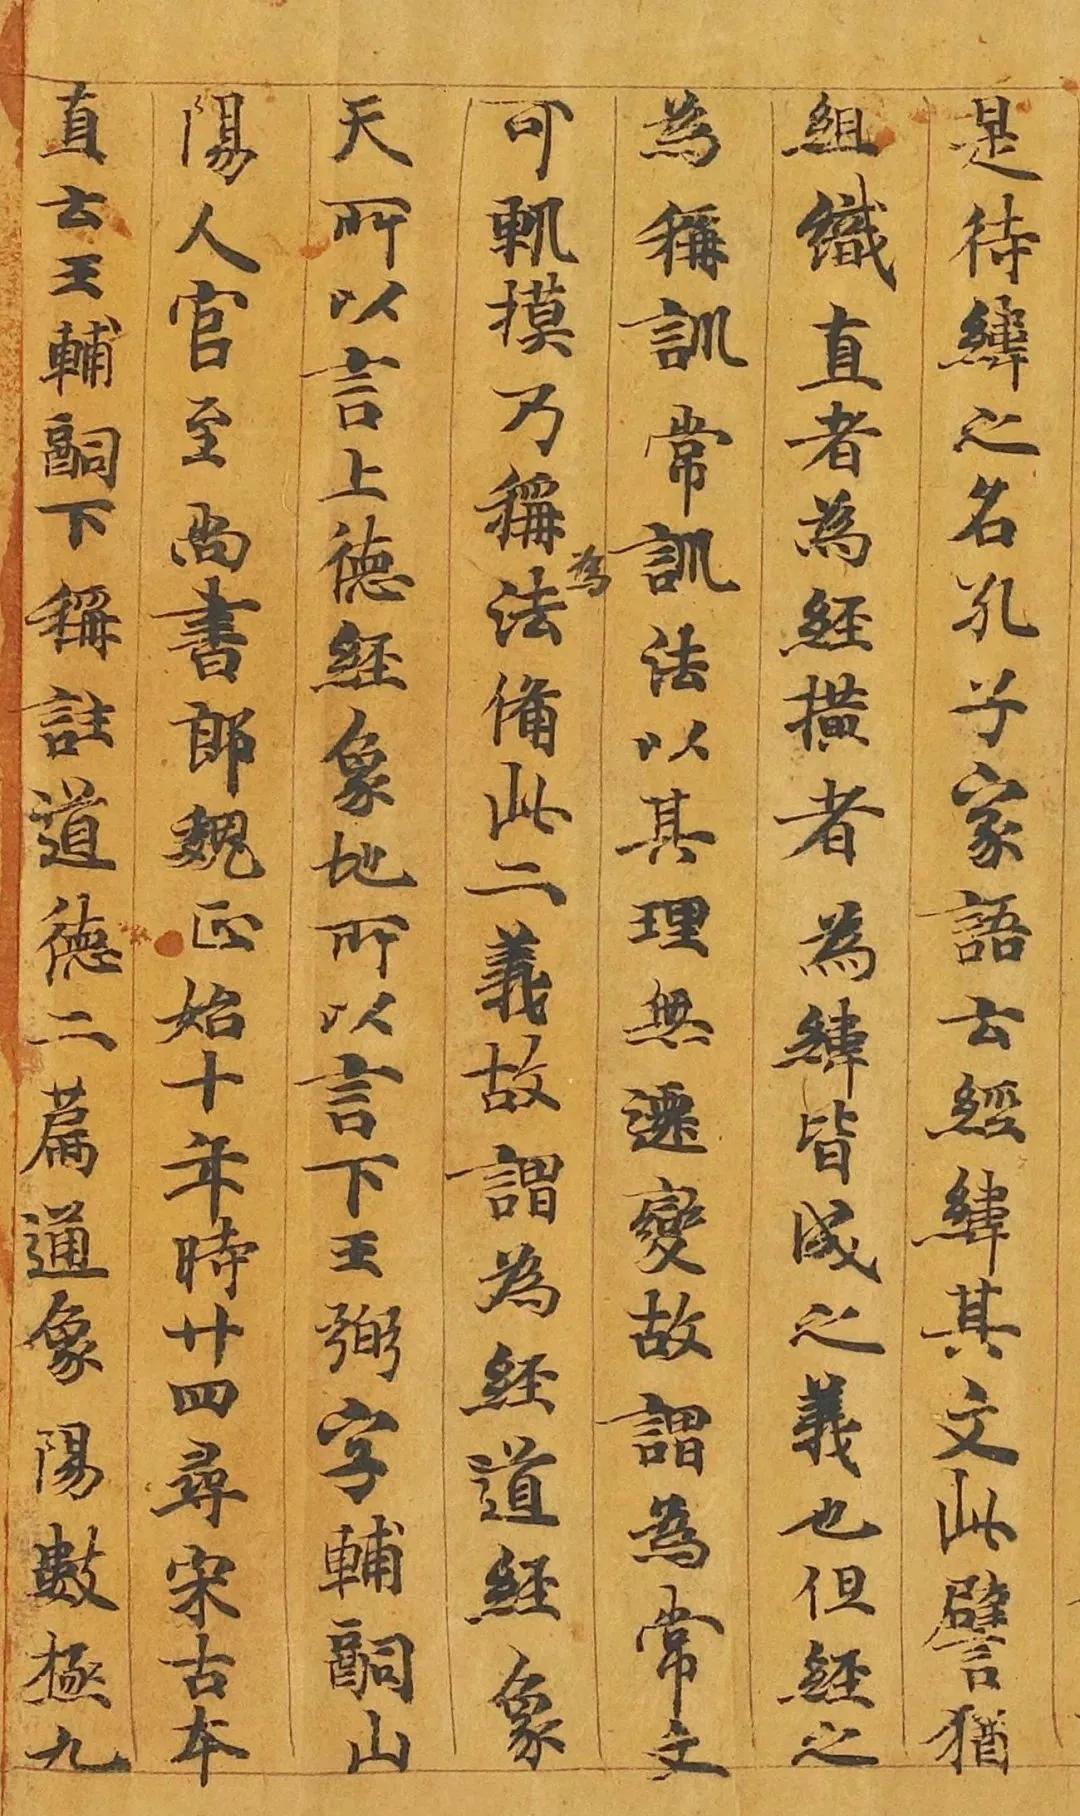 是待緯之名孔子家語云經緯其文此譬猶
組織直者為経横者為緯皆成之義也但経之
為稱訓常訓法以其理無遷變故謂為常文
可軌摸乃稱為法俻此二義故謂為経道経象
天所以言上徳経象地所以言下王弼字輔嗣山
陽人官至尚書郎魏正始十年時廿四尋宋古本
直云王輔嗣下稱註道徳二篇通象陽數極九